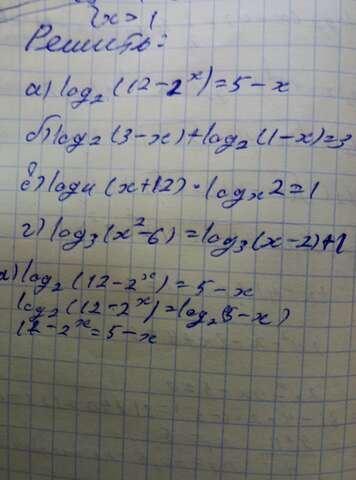 {x > 1
Решить:
а) log₂(12-2ˣ)=5-x
б) log₂(3-x)+log₂(1-x)=3
в) log₄(x+12)·logₓ2=1
г) log₃(x²-6)=log₃(x-2)+1
а) log₂(12-2ˣ)=5-x
log₂(12-2ˣ)=log₂(5-x)
12-2ˣ=5-x